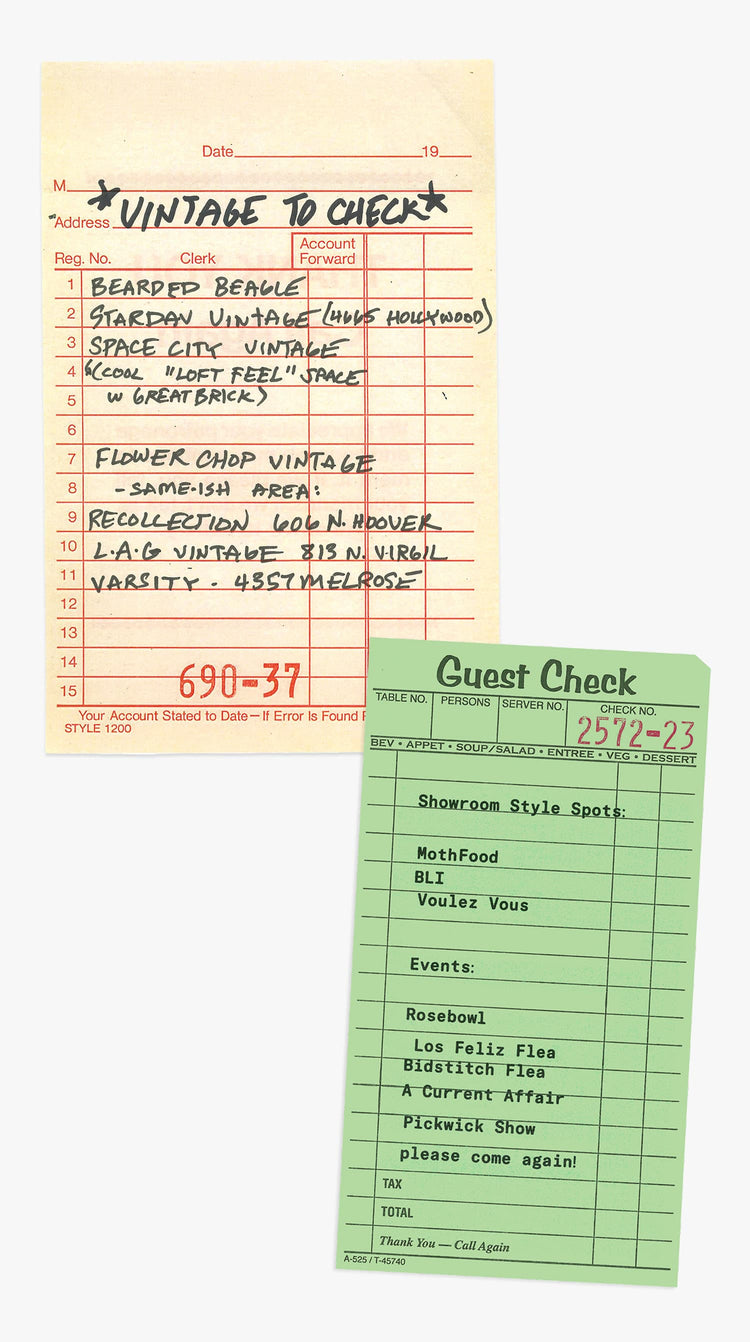 Date 19
M
Address *VINTAGE TO CHECK*
Reg. No. Clerk Account Forward
1 BEARDED BEAGLE
2 STARDAV VINTAGE (4665 HOLLYWOOD)
3 SPACE CITY VINTAGE
4 (COOL "LOFT FEEL" SPACE
5 W GREAT BRICK)
6
7 FLOWER CHOP VINTAGE
8 -SAME-ISH AREA:
9 RECOLLECTION 606 N. HOOVER
10 L.A.G VINTAGE 813 N. VIRGIL
11 VARSITY - 4357 MELROSE
12
13
14
15
690-37
Your Account Stated to Date—If Error Is Found
STYLE 1200
Guest Check
TABLE NO. PERSONS SERVER NO. CHECK NO.
2572-23
BEV • APPET • SOUP/SALAD • ENTREE • VEG • DESSERT
Showroom Style Spots:
MothFood
BLI
Voulez Vous
Events:
Rosebowl
Los Feliz Flea
Bidstitch Flea
A Current Affair
Pickwick Show
please come again!
TAX
TOTAL
Thank You — Call Again
A-525 / T-45740